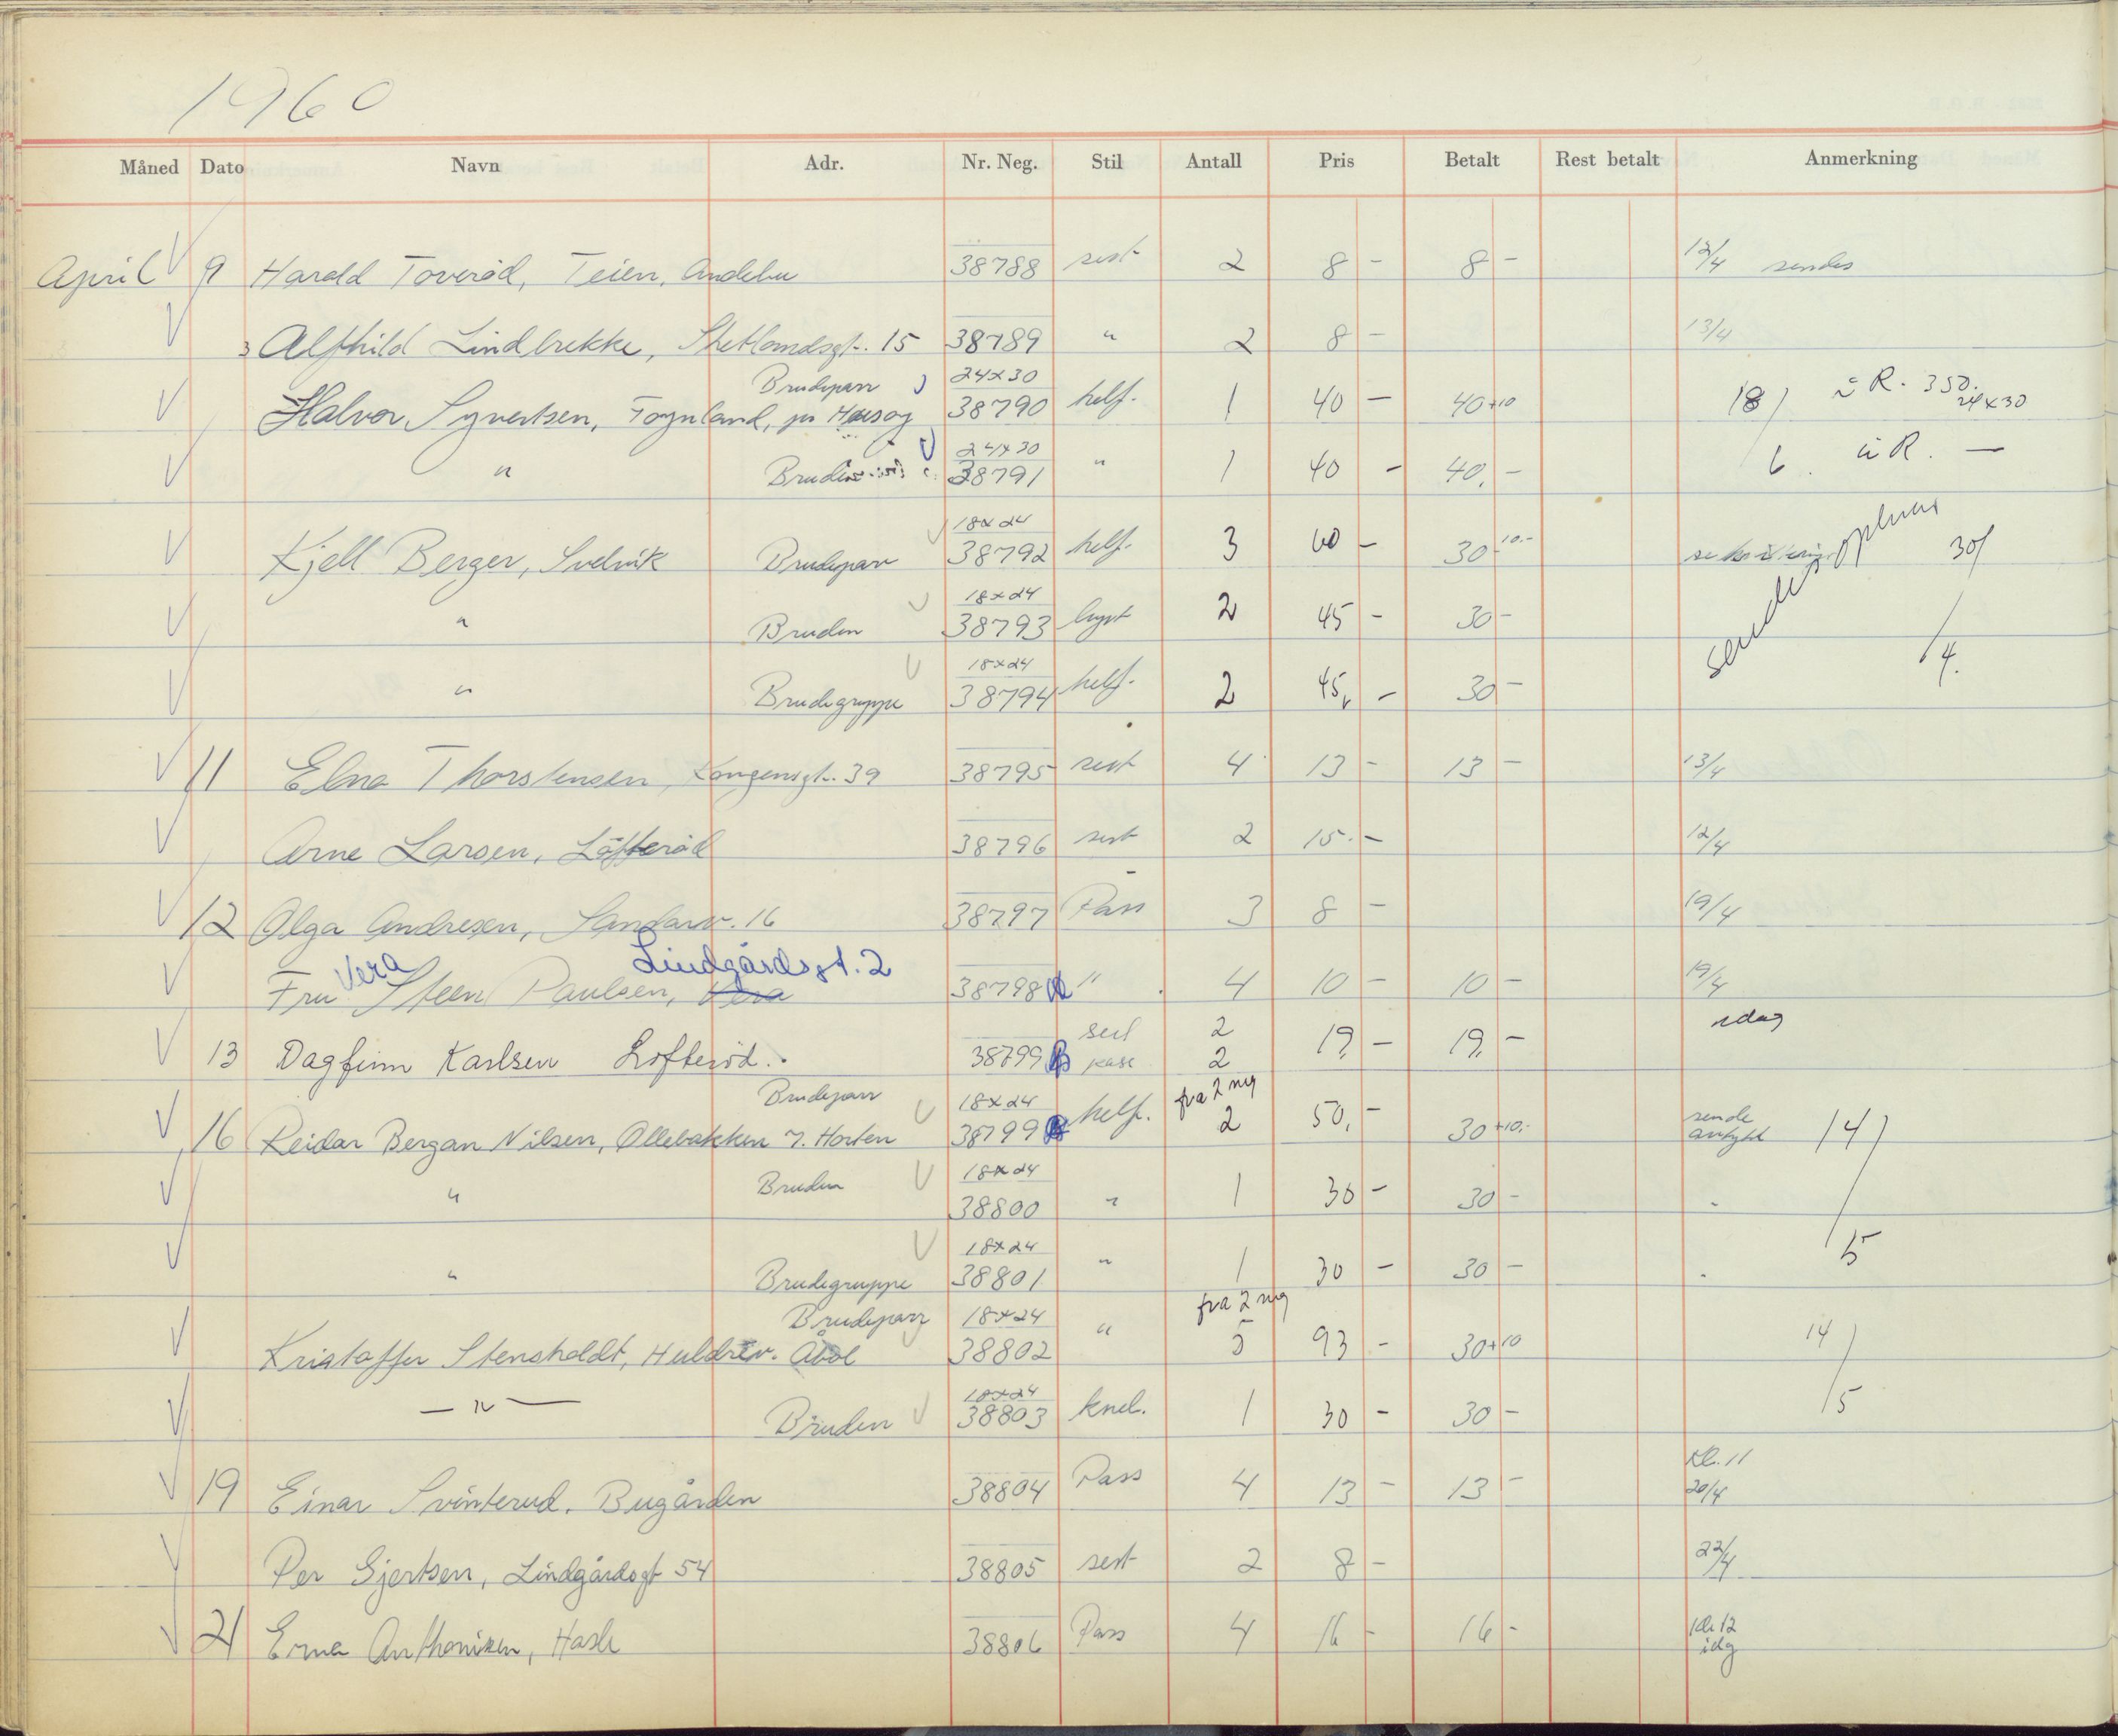 1960
Måned Dato Navn Adr. Nr. Neg. Stil Antall Pris Betalt Rest betalt Anmerkning
April 9 Harald Toveröd, Teien, Andebu 38788 sest 2 8 - 8 - 12/4 sendes
Alfhild Lindbrekke, Shetlandsgt. 15 38789 " 2 8 - 13/4
Brudepar 24x30
Halvor Syvertsen, Föynland, pr Husøy 38790 helf. 1 40 - 40+10 18/ R. 350. 24x30
24x30
" Bruden 38791 " 1 40 - 40,- 6. R. —
18x24
Kjell Berger, Svelvik Brudepar 38792 helf. 3 60 - 30 10.- 30/
18x24
" Bruden 38793 bryst 2 45 - 30 - sendes
18x24
" Brudegruppe 38794 helf. 2 45, - 30 - /4.
11 Elna Thorstensen, Kongensgt. 39 38795 sest 4 13 - 13 - 13/4
Arne Larsen, Löfteröd 38796 sest 2 15.- 12/4
12 Olga Andresen, Sandarv. 16 38797 Pass 3 8 - 19/4
Vera Lindgårdsgt. 2
Fru Steen Paulsen, Vera 38798 " 4 10 - 10 - 19/4
sest 2 idag
13 Dagfinn Karlsen Lofteröd. 38799 pass 2 19,- 19,-
Brudepar 18x24 fra 2 neg
16 Reidar Bergan Nilsen, Ollebakken 7. Horten 38799 B helf. 2 50,- 30+10.- sende antykk 14/
18x24
" Bruden 38800 " 1 30 - 30 - "
18x24 5
" Brudegruppe 38801 " 1 30 - 30 -
Brudepar 18x24 fra 2 neg
Kristoffer Stensholdt, Huldrev. Åsol 38802 " 5 93 - 30+10 14/
18x24
— " — Bruden 38803 knel. 1 30 - 30 - /5
19 Einar Svinterud, Bugården 38804 Pass 4 13 - 13 - kl. 11 20/4
Per Gjertsen, Lindgårdsgt 54 38805 sest 2 8 - 22/4
21 Erna Anthonisen, Hasle 38806 Pass 4 16 - 16 - kl. 12 idg